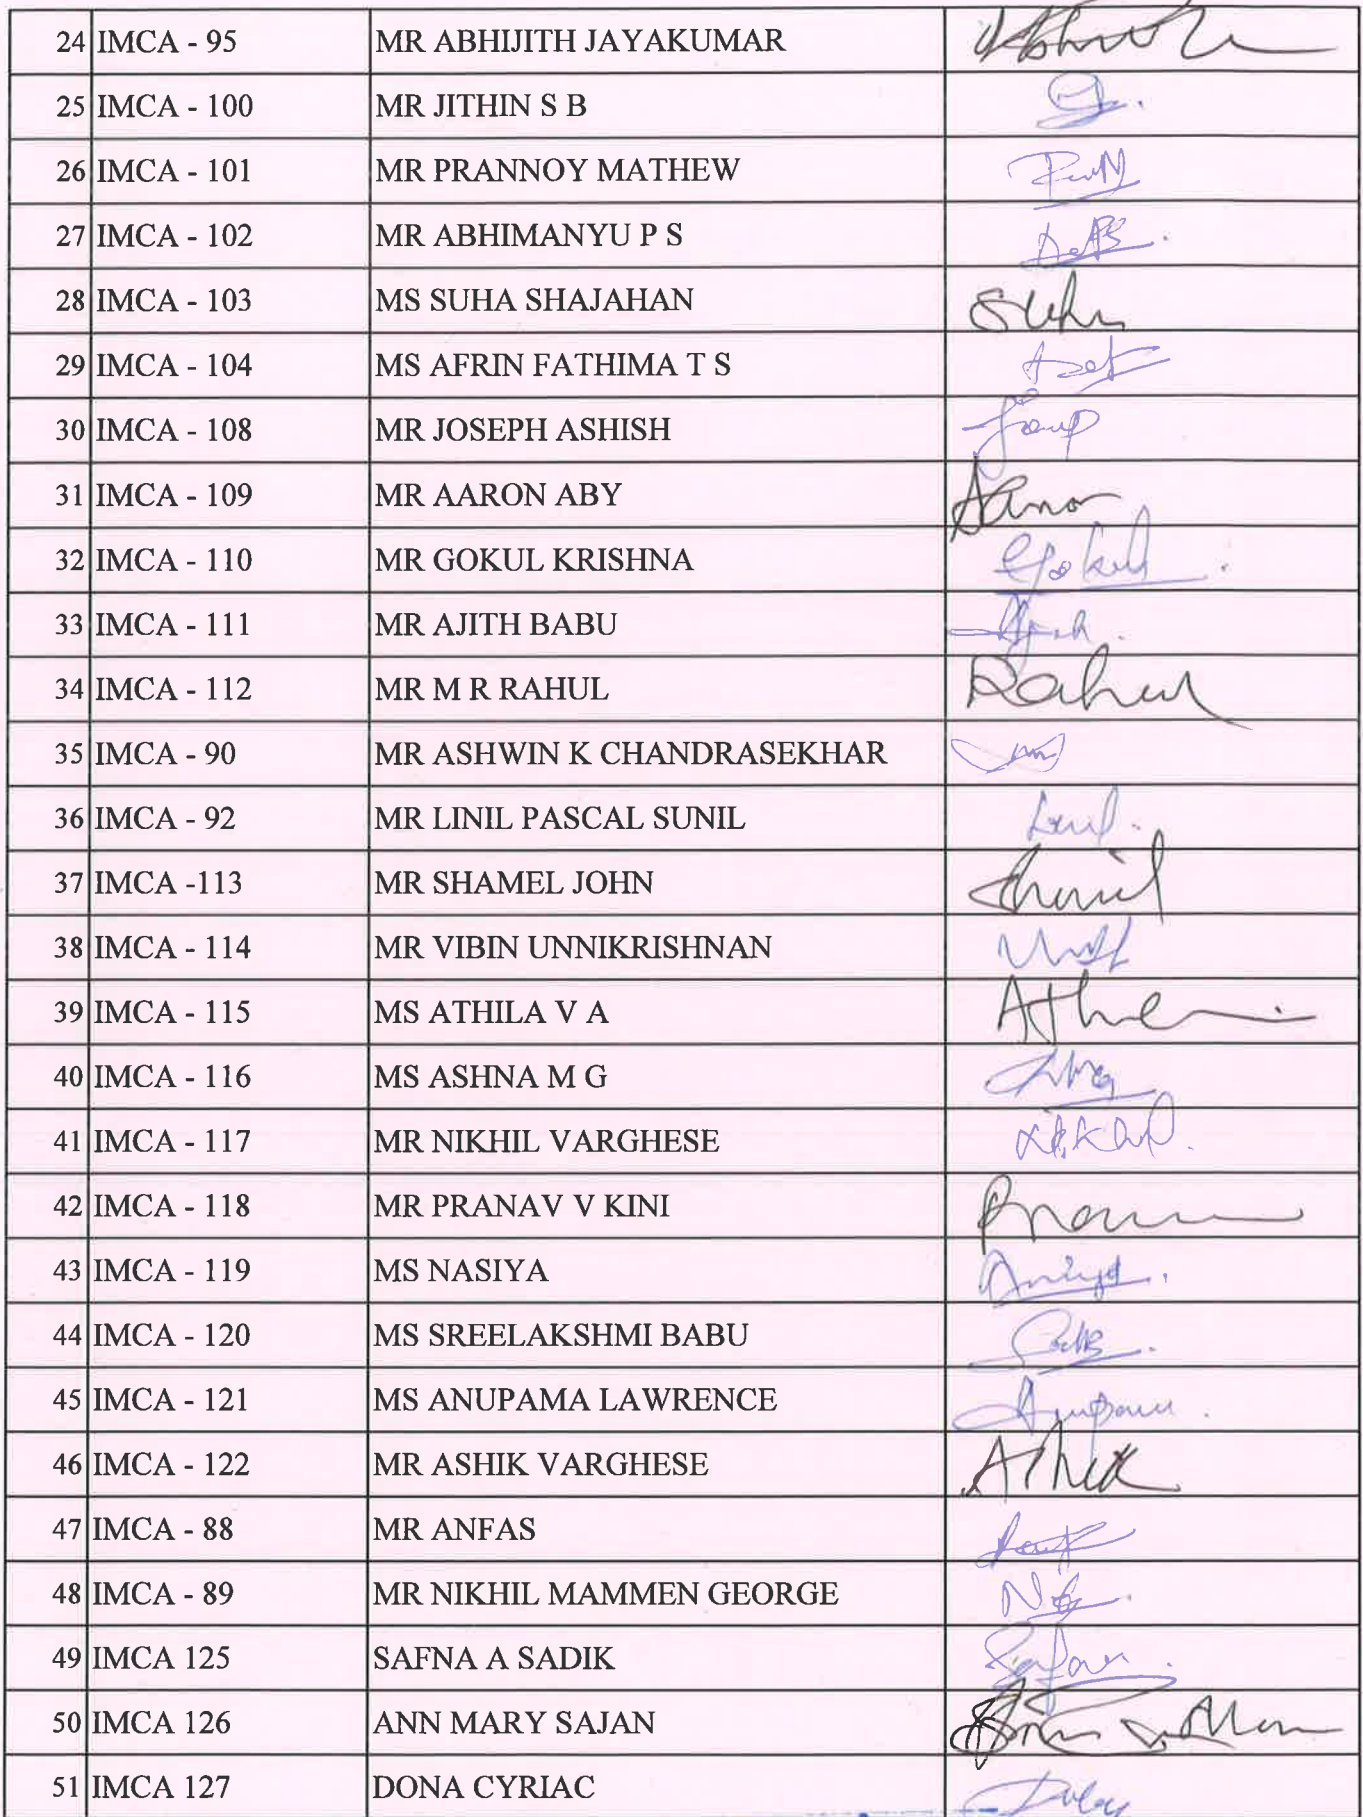 24 IMCA - 95 MR ABHIJITH JAYAKUMAR
25 IMCA - 100 MR JITHIN S B
26 IMCA - 101 MR PRANNOY MATHEW
27 IMCA - 102 MR ABHIMANYU P S
28 IMCA - 103 MS SUHA SHAJAHAN Suha
29 IMCA - 104 MS AFRIN FATHIMA T S
30 IMCA - 108 MR JOSEPH ASHISH
31 IMCA - 109 MR AARON ABY
32 IMCA - 110 MR GOKUL KRISHNA Gokul
33 IMCA - 111 MR AJITH BABU
34 IMCA - 112 MR M R RAHUL Rahul
35 IMCA - 90 MR ASHWIN K CHANDRASEKHAR
36 IMCA - 92 MR LINIL PASCAL SUNIL
37 IMCA -113 MR SHAMEL JOHN
38 IMCA - 114 MR VIBIN UNNIKRISHNAN
39 IMCA - 115 MS ATHILA V A
40 IMCA - 116 MS ASHNA M G
41 IMCA - 117 MR NIKHIL VARGHESE
42 IMCA - 118 MR PRANAV V KINI
43 IMCA - 119 MS NASIYA
44 IMCA - 120 MS SREELAKSHMI BABU
45 IMCA - 121 MS ANUPAMA LAWRENCE
46 IMCA - 122 MR ASHIK VARGHESE Ashik
47 IMCA - 88 MR ANFAS
48 IMCA - 89 MR NIKHIL MAMMEN GEORGE
49 IMCA 125 SAFNA A SADIK
50 IMCA 126 ANN MARY SAJAN
51 IMCA 127 DONA CYRIAC